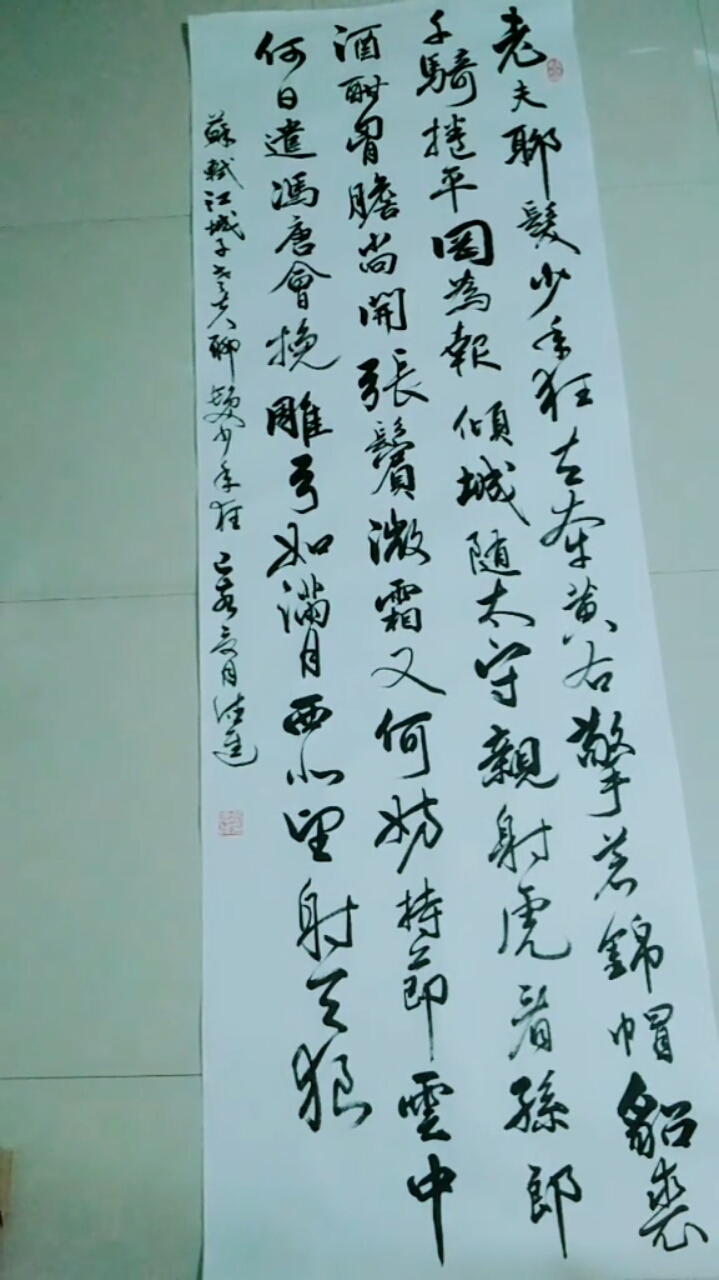 老夫聊髮少年狂左牽黄右擎蒼錦帽貂裘
千騎捲平岡為報傾城随太守親射虎看孫郎
酒酣胷膽尚開張鬢微霜又何妨持節雲中
何日遣馮唐會挽雕弓如滿月西北望射天狼
蘇軾江城子老夫聊髮少年狂 己亥三月